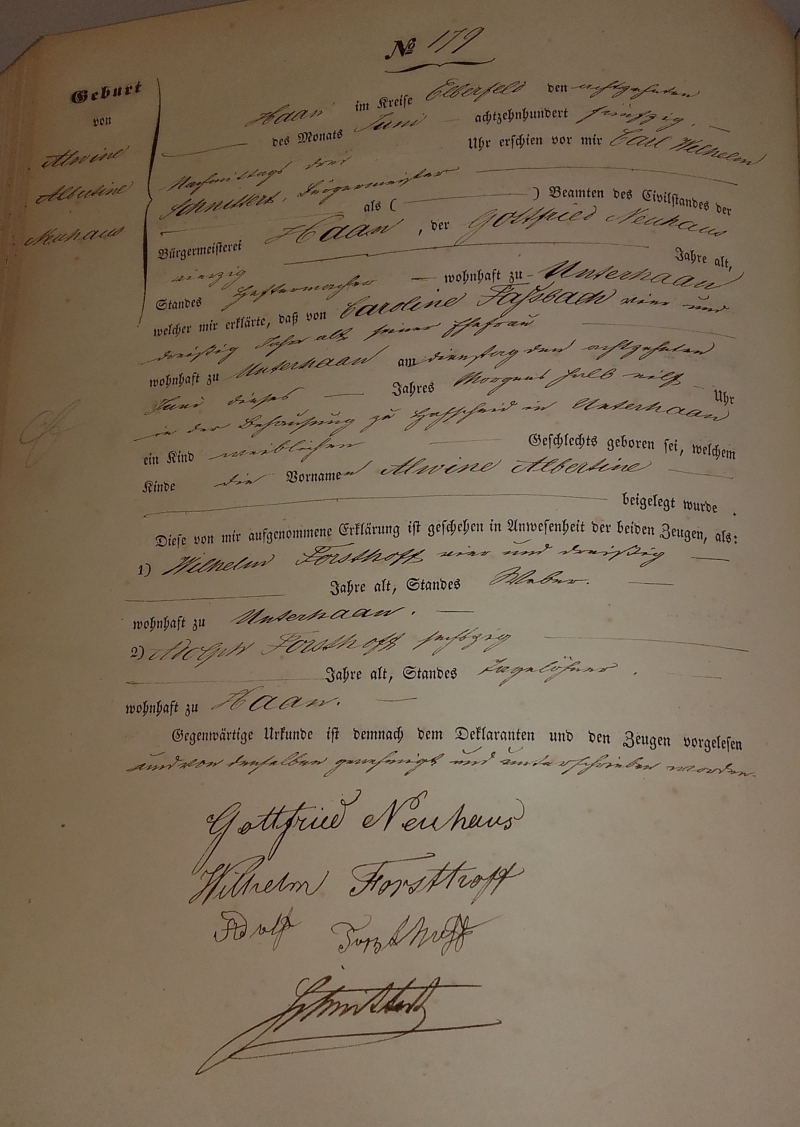 № 179
Geburt
von
Alwine
Albertine
Neuhaus
Haan im Kreise Elberfeld den achtzehnten
des Monats Juni achtzehnhundert fünfzig,
Nachmittags drei Uhr erschien vor mir Carl Wilhelm
Schnittert, Bürgermeister als ( ) Beamten des Civilstandes der
Bürgermeisterei Haan, der Gottfried Neuhaus
vierzig Jahre alt,
Standes wohnhaft zu Unterhaan
welcher mir erklärte, daß von Caroline Faßbach vier und
dreißig Jahr alt seiner Ehefrau
wohnhaft zu Unterhaan am dienstag den achtzehnten
Juni dieses Jahres Morgens halb eilf Uhr
in der Behausung zu in Unterhaan
ein Kind weiblichen Geschlechts geboren sei, welchem
Kinde die Vornamen Alwine Albertine
beigelegt wurde.
Diese von mir aufgenommene Erklärung ist geschehen in Anwesenheit der beiden Zeugen, als:
1) Wilhelm Forsthoff vier und dreißig
Jahre alt, Standes Weber.
wohnhaft zu Unterhaan.
2) Adolph Forsthoff sechszig
Jahre alt, Standes Tagelöhner.
wohnhaft zu Haan.
Gegenwärtige Urkunde ist demnach dem Deklaranten und den Zeugen vorgelesen
und von denselben genehmigt und unterschrieben worden.
Gottfried Neuhaus
Wilhelm Forsthoff
Adolf Forsthoff
Schnittert